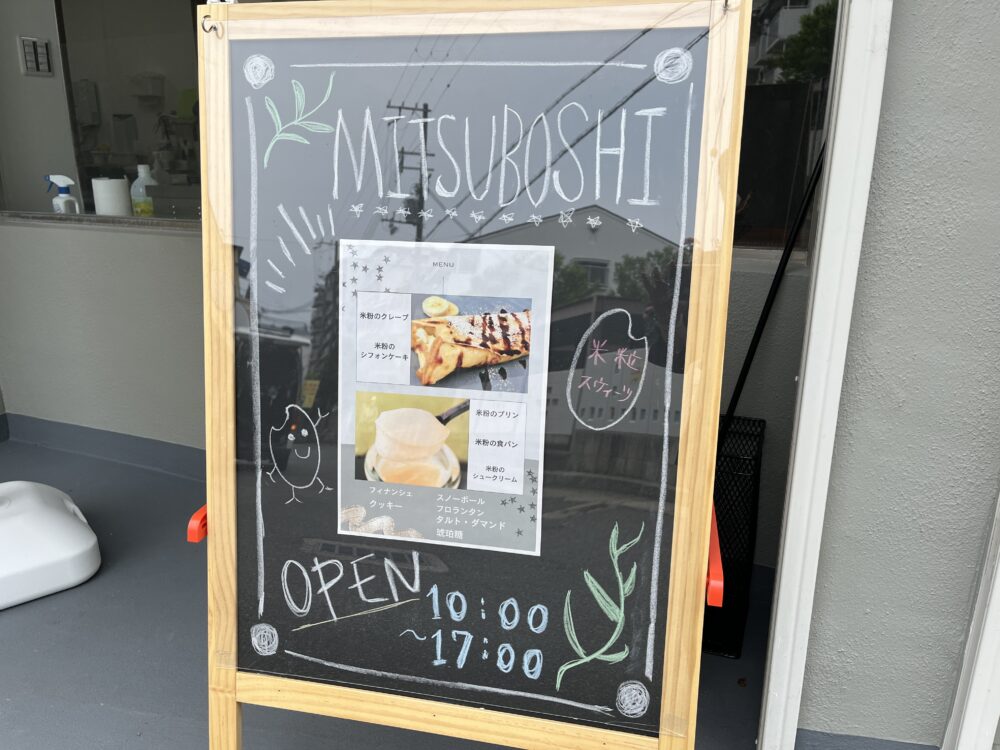 MITSUBOSHI
MENU
米粉のクレープ
米粉の
シフォンケーキ
米粒
スウィーツ
米粉のプリン
米粉の食パン
米粉の
シュークリーム
フィナンシェ
クッキー
スノーボール
フロランタン
タルト・ダマンド
琥珀糖
OPEN
10:00
~17:00